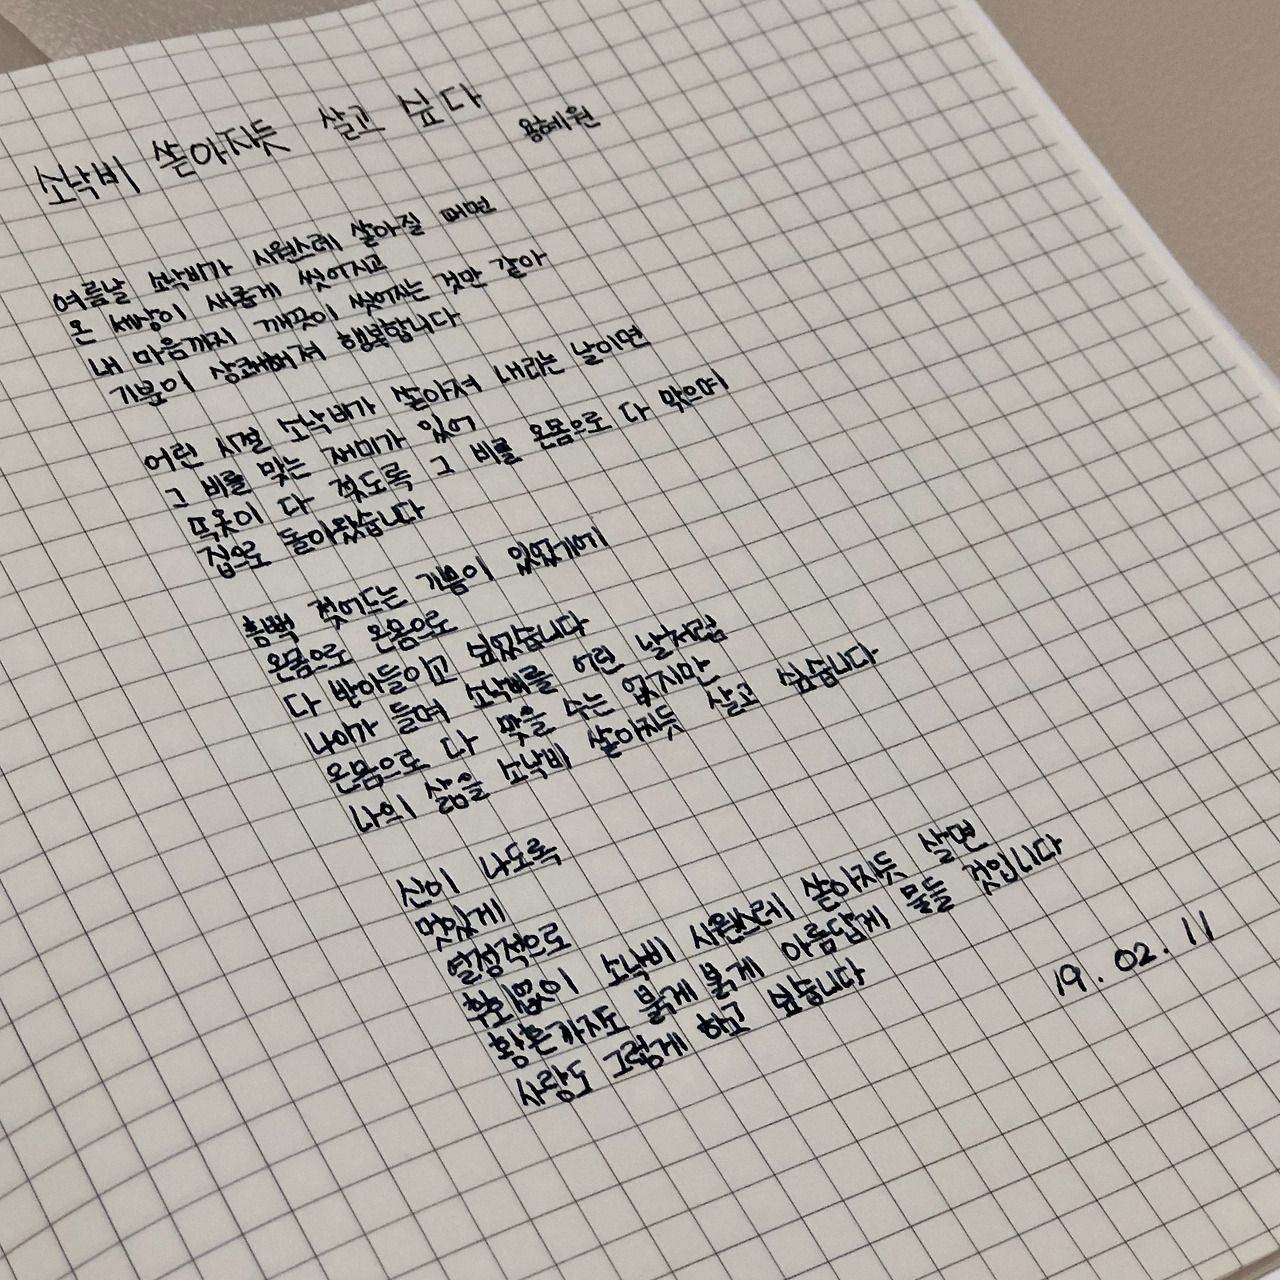 소낙비 쏟아지듯 살고 싶다
용혜원
여름날 소낙비가 시원스레 쏟아질 때면
온 세상이 새롭게 씻어지고
내 마음까지 깨끗이 씻어지는 것만 같아
기분이 상쾌해져 행복합니다
어린 시절 소낙비가 쏟아져 내리는 날이면
그 비를 맞는 재미가 있어
속옷이 다 젖도록 그 비를 온몸으로 다 맞으며
집으로 돌아왔습니다
흠뻑 젖어드는 기쁨이 있었기에
온몸으로 온몸으로
다 받아들이고 싶었습니다
나이가 들며 소낙비를 어린 날처럼
온몸으로 다 맞을 수는 없지만
나의 삶을 소낙비 쏟아지듯 살고 싶습니다
신이 나도록
멋있게
열정적으로
후회없이 소낙비 시원스레 쏟아지듯 살면
황혼까지도 붉게 붉게 아름답게 물들 것입니다
사랑도 그렇게 하고 싶습니다
19. 02. 11